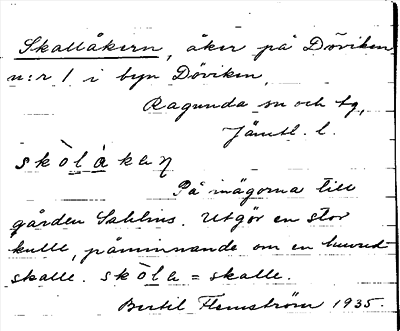 Skallåkern, åker på Döviken
n:r 1 i byn Döviken,
Ragunda sn och tg,
Jämtl. l.
skòlåkaņ
På inägorna till
gården Sahlins. Utgör en stor
kulle, påminnande om en huvud-
skalle. skòla = skalle.
Bertil Flemström 1935.